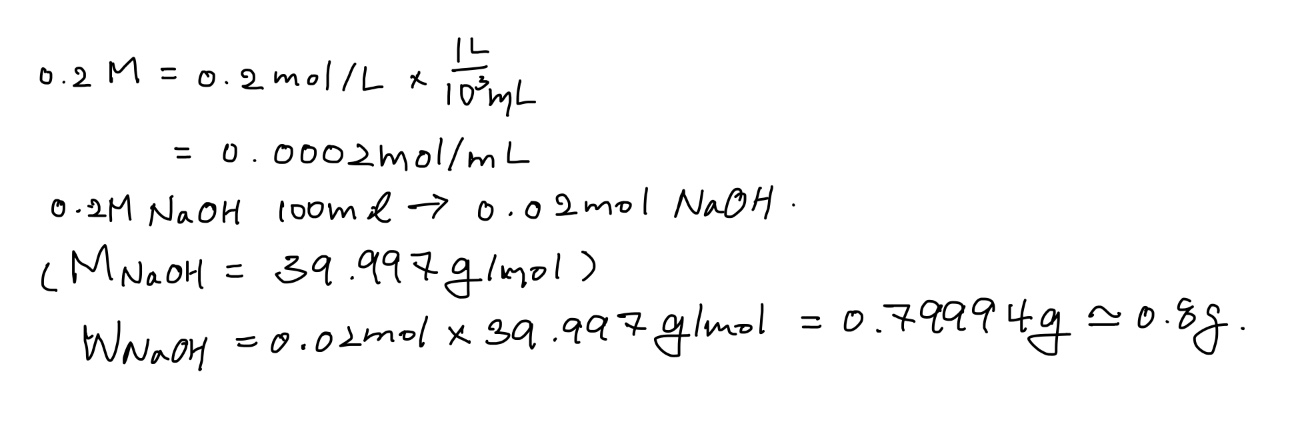 0.2 M = 0.2 mol/L × 1L/10³mL
= 0.0002mol/mL
0.2M NaOH 100mℓ → 0.02mol NaOH.
(M NaOH = 39.997g/mol)
W NaOH = 0.02mol × 39.997g/mol = 0.79994g ≃ 0.8g.